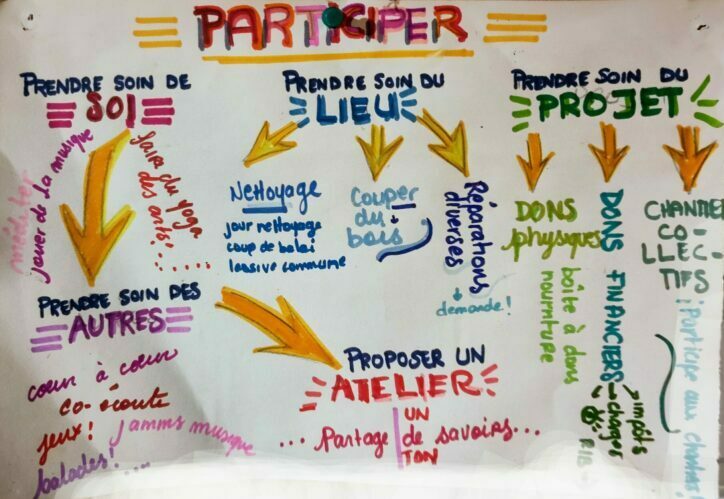 PARTICIPER
PRENDRE SOIN DE
SOI
méditer
jouer de la musique
faire du yoga
des arts! .....
PRENDRE SOIN DES
AUTRES
cœur à cœur
co-écoute
jeux! jamms musique
balades! ...
PRENDRE SOIN DU
LIEU
Nettoyage
jour nettoyage
coup de balai
lessive commune
Couper
du
bois
Réparations
diverses
demande!
PROPOSER UN
ATELIER
... Partage UN de savoirs...
TON
PRENDRE SOIN DU
PROJET
DONS
physiques
boîte à dons
nourriture
DONS FINANCIERS
impôts
charges
RIB
CHANTIE
CO-
LLEC-
TIFS
¡Participe aux chantiers!